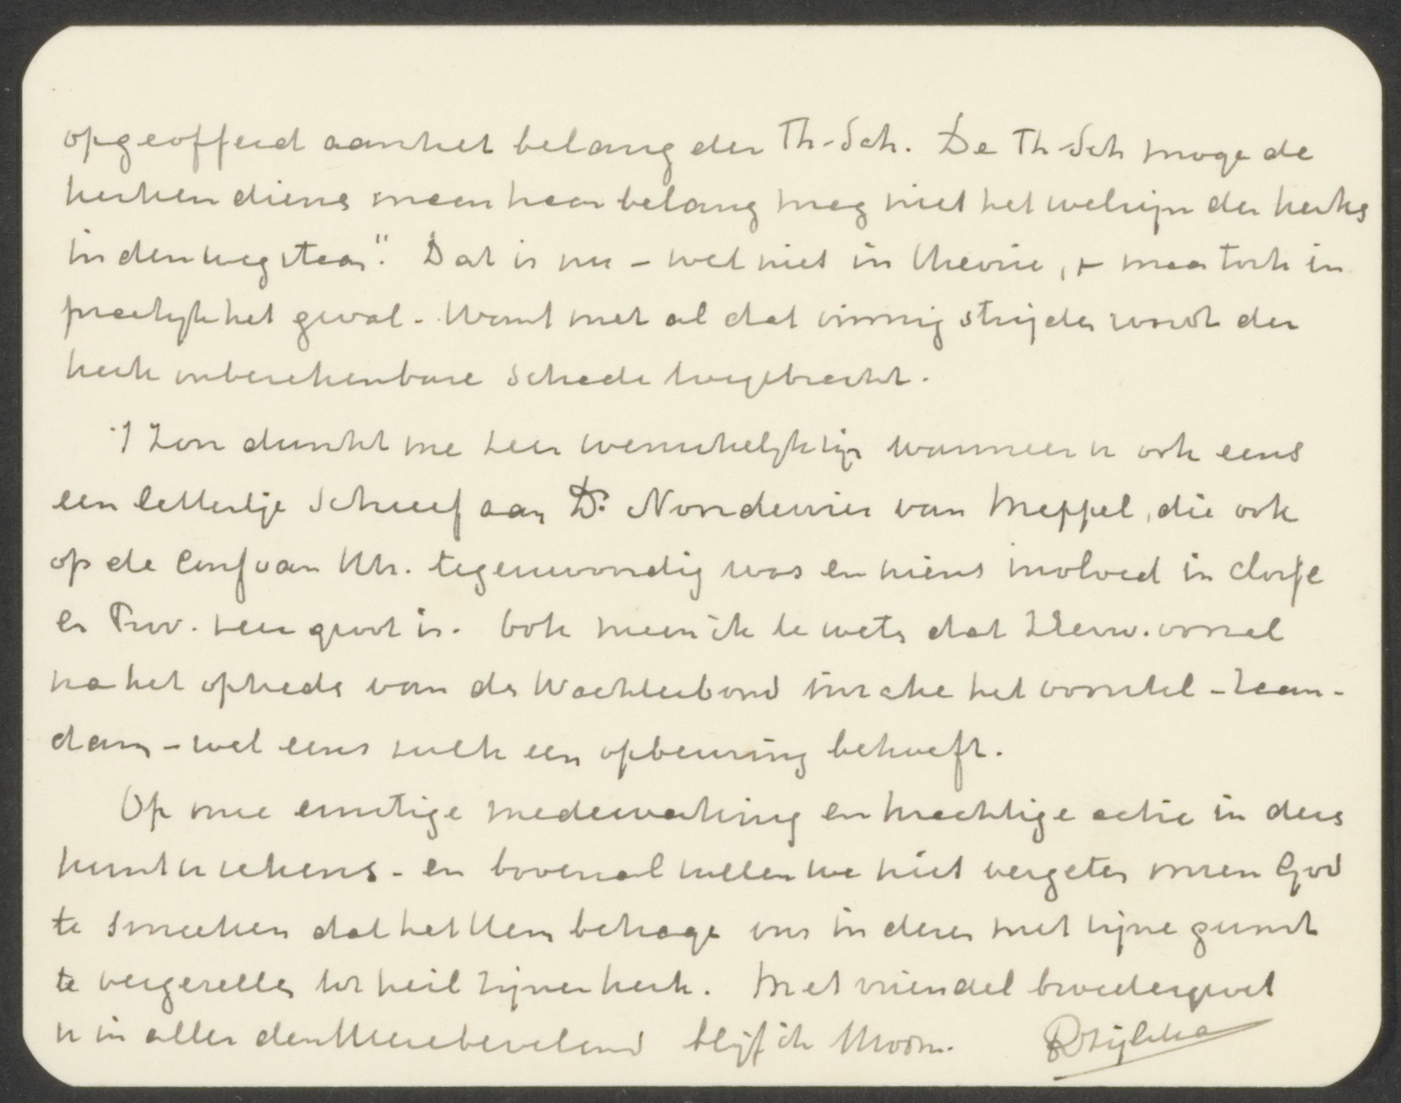 opgeofferd aan het belang der Th-Sch. De Th-Sch moge de
kerken dienen maar haar belang mag niet het welzijn der kerken
in den weg staan". Dat is nu - wel niet in theorie, maar toch in
practijk het geval. Want met al dat vinnig strijden wordt der
kerk onberekenbare schade toegebracht.
't Zou dunkt me zeer wenschelijk zijn wanneer u ook eens
een lettertje schreef aan Ds. Noordewier van Meppel, die ook
op de Conf van Utr. tegenwoordig was en wiens invloed in classe
en Prov. zeer groot is. Ook meen ik te weten dat ZEerw. vooral
na het optreden van de Wachterbond inzake het voorstel - Zaan-
dam - wel eens zulk een opbeuring behoeft.
Op mijne ernstige medewerking en krachtige actie in dezen
kunt u rekenen - en bovenal zullen we niet vergeten onzen God
te smeeken dat het Hem behage ons in dezen met zijne gunst
te vergezellen tot heil zijner kerk. Met vriendel broedergroet
u in allen den Heere bevelend blijf ik